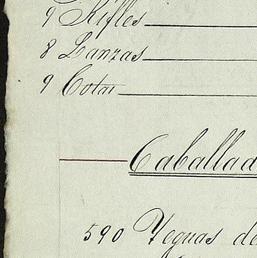 9 Rifles
8 Lanzas
9 Cotas
Caballad
590 Yeguas de